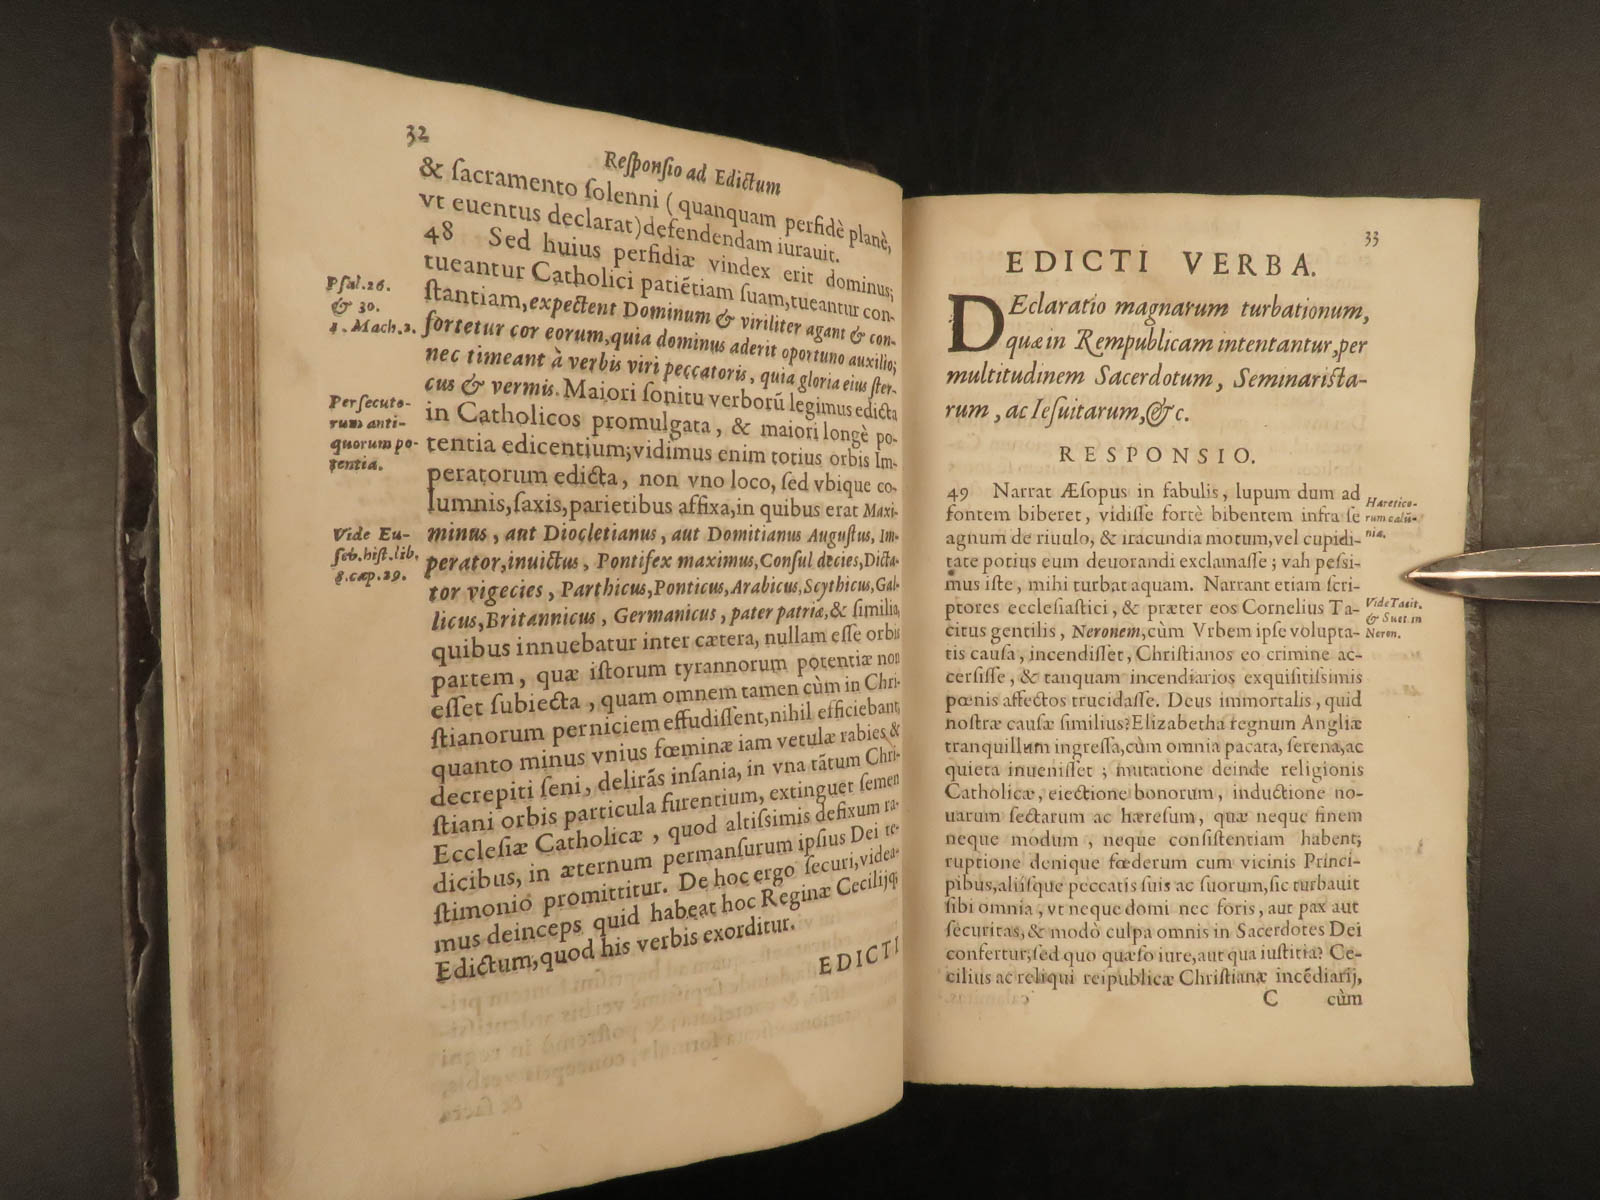 32
Reſponſio ad Edictum
& ſacramento ſolenni (quanquam perfidè planè,
vt euentus declarat) defendendam iurauit.
48 Sed huius perfidiæ vindex erit dominus;
tueantur Catholici patiētiam ſuam, tueantur con-
ſtantiam, expectent Dominum & viriliter agant & con-
fortetur cor eorum, quia dominus aderit oportuno auxilio;
nec timeant à verbis viri peccatoris, quia gloria eius ſter-
cus & vermis. Maiori ſonitu verborū legimus edicta
in Catholicos promulgata, & maiori longè po-
tentia edicentium; vidimus enim totius orbis Im-
peratorum edicta, non vno loco, ſed vbique co-
lumnis, ſaxis, parietibus affixa, in quibus erat Maxi-
minus, aut Diocletianus, aut Domitianus Auguſtus, Im-
perator, inuictus, Pontifex maximus, Conſul decies, Dicta-
tor vigecies, Parthicus, Ponticus, Arabicus, Scythicus, Gal-
licus, Britannicus, Germanicus, pater patriæ, & ſimilia,
quibus innuebatur inter cætera, nullam eſſe orbis
partem, quæ iſtorum tyrannorum potentiæ non
eſſet ſubiecta, quam omnem tamen cùm in Chri-
ſtianorum perniciem effudiſſent, nihil efficiebant,
quanto minus vnius fœminæ iam vetulæ rabies, &
decrepiti ſeni, delirās inſania, in vna tātum Chri-
ſtiani orbis particula furentium, extinguet ſemen
Eccleſiæ Catholicæ, quod altiſsimis defixum ra-
dicibus, in æternum permanſurum ipſius Dei te-
ſtimonio promittitur. De hoc ergo ſecuri, videa-
mus deinceps quid habeat hoc Reginæ Cecilijq;
Edictum, quod his verbis exorditur.
EDICTI
Pſal. 26.
& 30.
1. Mach. 2.
Perſecuto-
rum anti-
quorum po-
tentia.
Vide Eu-
ſeb. hiſt. lib.
8. cap. 29.
33
EDICTI VERBA.
DEclaratio magnarum turbationum,
quæ in Rempublicam intentantur, per
multitudinem Sacerdotum, Seminariſta-
rum, ac Ieſuitarum, &c.
RESPONSIO.
49 Narrat Æſopus in fabulis, lupum dum ad
fontem biberet, vidiſſe fortè bibentem infra ſe
agnum de riuulo, & iracundia motum, vel cupidi-
tate potius eum deuorandi exclamaſſe; vah peſsi-
mus iſte, mihi turbat aquam. Narrant etiam ſcri-
ptores eccleſiaſtici, & præter eos Cornelius Ta-
citus gentilis, Neronem, cùm Vrbem ipſe volupta-
tis cauſa, incendiſſet, Chriſtianos eo crimine ac-
cerſiſſe, & tanquam incendiarios exquiſitiſsimis
pœnis affectos trucidaſſe. Deus immortalis, quid
noſtræ cauſæ ſimilius? Elizabetha regnum Angliæ
tranquillum ingreſſa, cùm omnia pacata, ſerena, ac
quieta inueniſſet; mutatione deinde religionis
Catholicæ, eiectione bonorum, inductione no-
uarum ſectarum ac hæreſum, quæ neque finem
neque modum, neque conſiſtentiam habent;
ruptione denique fœderum cum vicinis Princi-
pibus, aliiſque peccatis ſuis ac ſuorum, ſic turbauit
ſibi omnia, vt neque domi nec foris, aut pax aut
ſecuritas, & modò culpa omnis in Sacerdotes Dei
confertur; ſed quo quæſo iure, aut qua iuſtitia? Ce-
cilius ac reliqui reipublicæ Chriſtianæ incēdiarij,
C cùm
Hæretico-
rum calū-
niæ.
Vide Tacit.
& Suet. in
Neron.